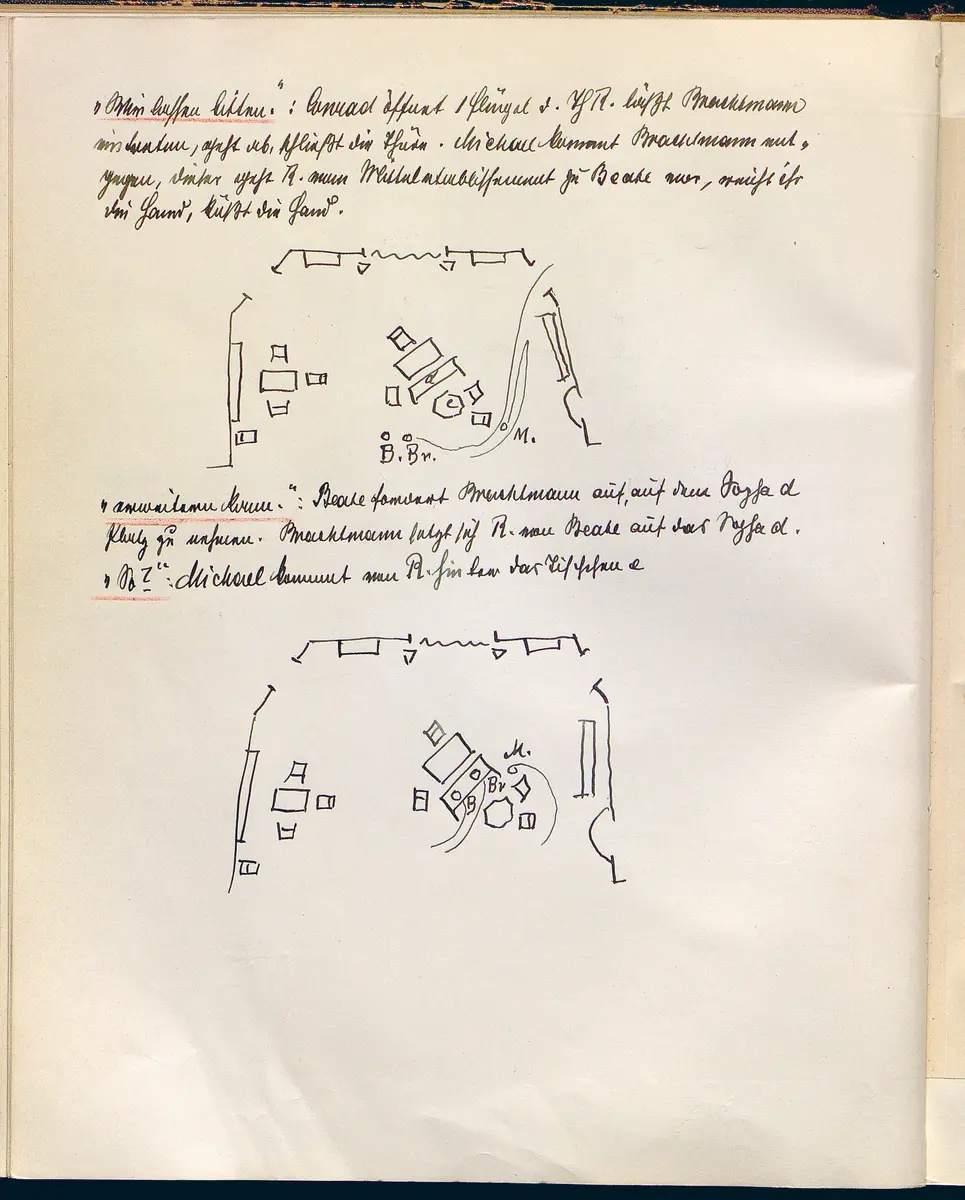 "Wir lassen bitten.": Conrad öffnet 1 Flügel d. ThR. läßt Brachtmann
eintreten, geht ab, schließt die Thüre. Michael kommt Brachtmann ent-
gegen, dieser geht R. vom Mitteletablissement zu Beate vor, reicht ihr
die Hand, küßt die Hand.
d
c
M.
B. Br.
"erweitern kann.": Beate fordert Brachtmann auf, auf dem Sopha d
Platz zu nehmen. Brachtmann setzt sich R. von Beate auf das Sopha d.
"So?": Michael kommt von R. hinter das Tischchen e
M.
Br
B